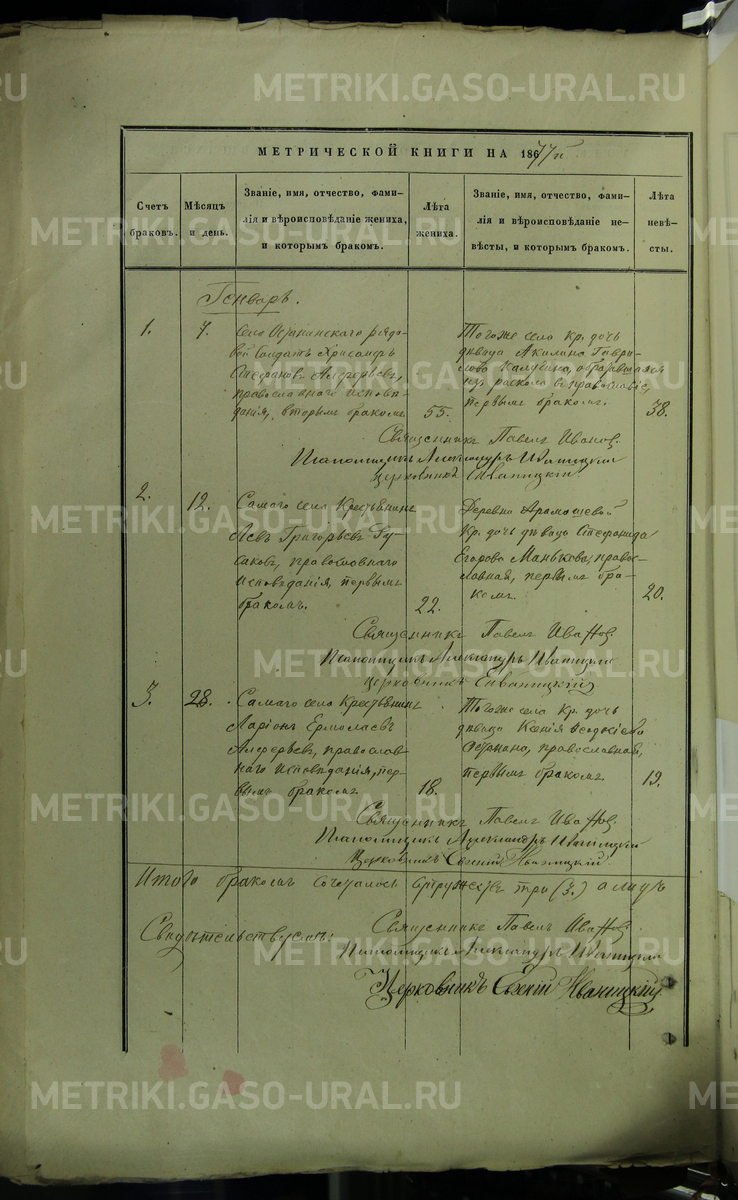 METRIKI.GASO-URAL.RU
МЕТРИЧЕСКОЙ КНИГИ НА 1877й
Счетъ браковъ.
Мѣсяцъ и день.
Званіе, имя, отчество, фами-
лія и вѣроисповѣданіе жениха,
и которымъ бракомъ.
Лѣта жениха.
Званіе, имя, отчество, фами-
лія и вѣроисповѣданіе не-
вѣсты, и которымъ бракомъ.
Лѣта невѣ-
сты.
Генварь.
1.
7.
села рядо-
вой Солдатъ Хрисанфъ
Стефановъ Алферьевъ,
православнаго исповѣ-
данія, вторымъ бракомъ.
55.
Тогоже села кр. дочь
дѣвица Акилина Гаври-
лова обратившаяся
изъ раскола въ православіе,
первымъ бракомъ.
38.
Священникъ Павелъ Ивановъ.
Псаломщикъ Александръ Иваницкій
Церковникъ Иваницкій
2.
12.
Самаго села Крестьянинъ
Левъ Григорьевъ Гу-
саковъ, православнаго
исповѣданія, первымъ
бракомъ.
22.
Деревни Арамашевой
Кр. дочь дѣвица Стефанида
Егорова Манькова, право-
славная, первымъ бра-
комъ.
20.
Священникъ Павелъ Ивановъ.
Псаломщикъ Александръ Иваницкій
Церковникъ Иваницкій
3.
28.
Самаго села Крестьянинъ
Ларіонъ Ермолаевъ
Алферьевъ, православ-
наго исповѣданія, пер-
вымъ бракомъ.
18.
Тогоже села кр. дочь
дѣвица Ксенія
православная,
первымъ бракомъ.
19.
Священникъ Павелъ Ивановъ.
Псаломщикъ Александръ Иваницкій
Церковникъ Евгеній Иваницкій.
Итого бракомъ сочеталось супружествъ три (3.) а лицъ
Свидѣтельствуемъ:
Священникъ Павелъ Ивановъ.
Псаломщикъ Александръ Иваницкій
Церковникъ Евгеній Иваницкій.